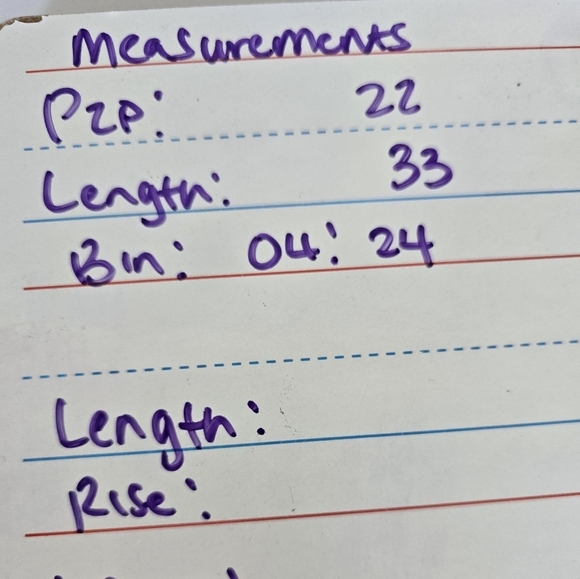 Measurements
P2P: 22
Length: 33
Bin: 04: 24
Length:
Rise: